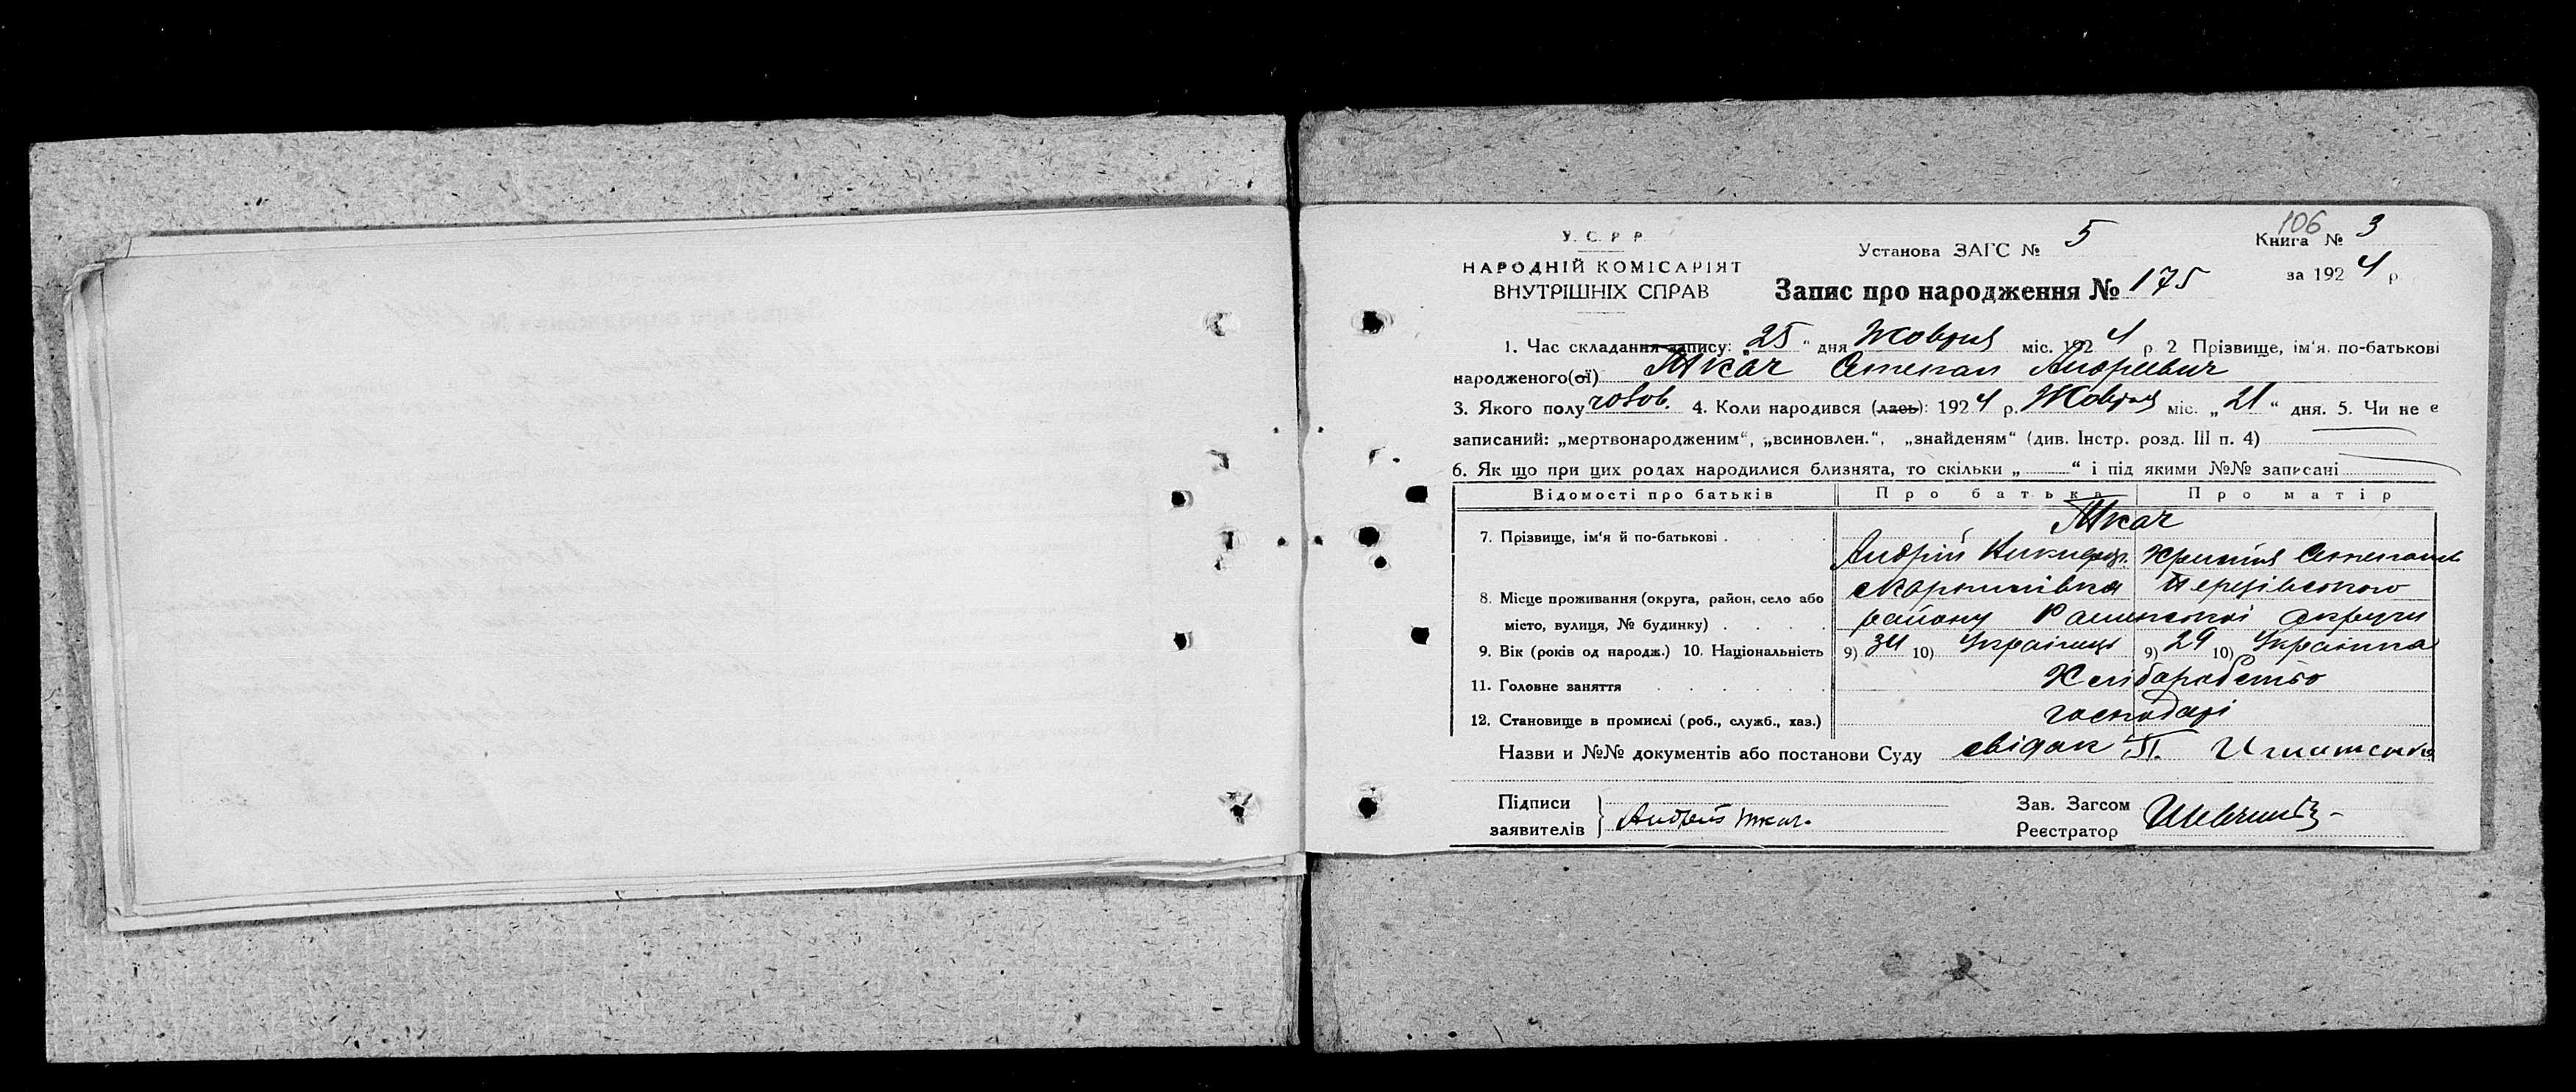 У. С. Р Р.
НАРОДНІЙ КОМІСАРІЯТ
ВНУТРІШНІХ СПРАВ
Установа ЗАГС № 5
106
Книга № 3
за 1924 р
Запис про народження № 175
1. Час складання запису: „25“ дня Жовтня міс. 1924 р. 2 Прізвище, ім'я, по-батькові
народженого(ої) Ткач Степан Андріевич
3. Якого полу чолов. 4. Коли народився (лась): 1924 р. Жовтня міс. „21“ дня. 5. Чи не є
записаний: „мертвонародженим“, „всиновлен.“, „знайденям“ (див. Інстр. розд. III п. 4)
6. Як що при цих родах народилися близнята, то скільки „ “ і під якими №№ записані
Відомості про батьків Про батька Про матір
Ткач
7. Прізвище, ім'я й по-батькові . Андрій Христя Степанів
8. Місце проживання (округа, район, село або Мартинівка
місто, вулиця, № будинку) . району Роменської округи
9. Вік (років од народж.) 10. Національність 9) 34 10) Українець 9) 29 10) Українка
11. Головне заняття Хліборобство
12. Становище в промислі (роб., служб., хаз.) господарі
Назви и №№ документів або постанови Суду свідок П. Игнатенко
Підписи
заявителів Андрей Ткач.
Зав. Загсом
Реєстратор